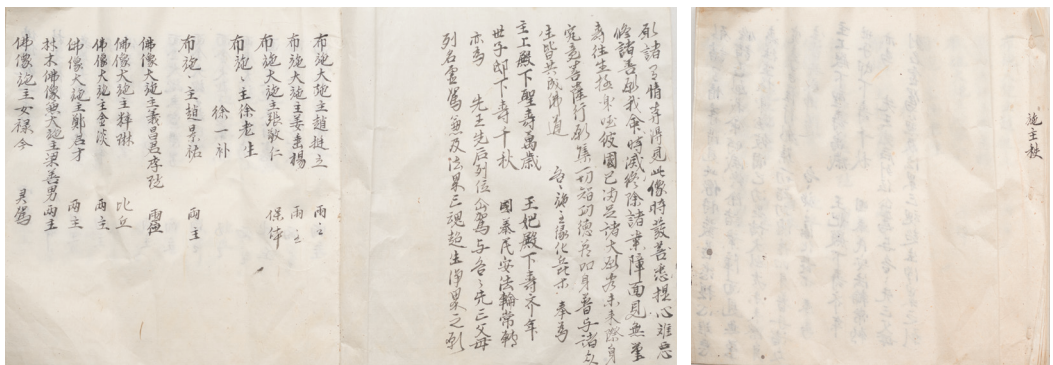 願諸有情弃得見此像時發菩悉提心離惡
修諸善願我命時滅終除諸業障面見無量
壽往生極樂彼國已滿足諸大願考未來際身
究竟菩薩行願集一切智功德身普与諸众
生皆共成佛道 各〻施主緣化等亦 奉為
主上殿下聖壽萬歲 王妃殿下壽齊年
世子邸下壽千秋 國泰民安法輪常轉
亦為 先王先后列位仙駕与各〻先亡父母
列名灵駕兼及法界三魂超生淨界之願
布施大施主趙挺立 兩主
布施大施主姜垂楊 兩主
布施大施主張敬仁 保体
布施〻主徐老生
徐一補
布施〻主趙景祐 兩主
佛像大施主義昌君李珖 兩位
佛像大施主釋琳 比丘
佛像大施主金淡 兩主
佛像大施主鄭名才 兩主
林木佛像兼大施主梁善男 兩主
佛像施主女祿今 灵駕
施主秩